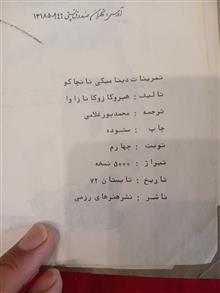 آدرس و تلفن ناشر صندوق پستی ۹۴۶-۱۳۱۸۵
تمرینات دینامیکی نانچاکو
تالیف: هیروکازوکانازاوا
ترجمه: محمدپورغلامی
چاپ: ستوده
نوبت: چهارم
تیراژ: ۵۰۰۰ نسخه
تاریخ: تابستان ۷۲
ناشر: نشرهنرهای رزمی